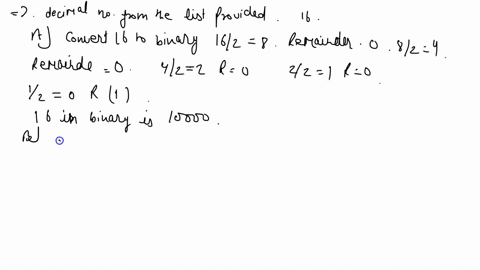 =>. decimal no. from the list provided. 16.
A] Convert 16 to binary 16/2 = 8. Remainder. 0. 8/2=4
Remainde = 0. 4/2=2 R=0 2/2=1 R=0
1/2 = 0 R (1).
16 in binary is 10000.
B]